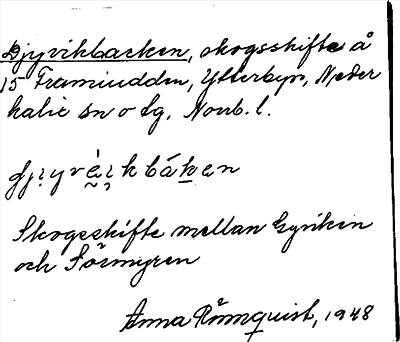 Djyvikbacken, skogsskifte å
15 Framiudden, Ytterbyn, Neder
kalix sn o lg, Norrb. l.
Skogsskifte mellan Gyviken
och Sörmyren
Anna Rönnquist, 1948